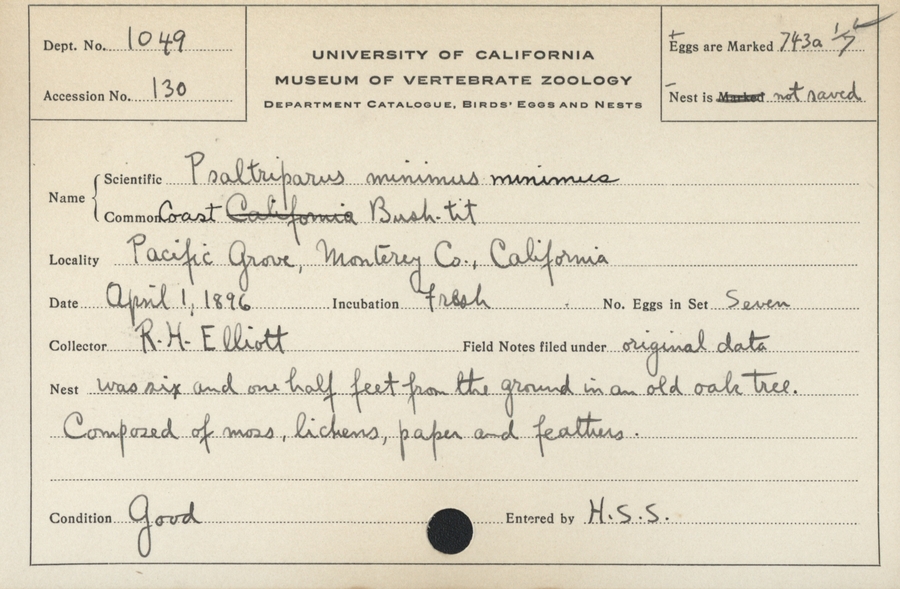 Dept. No. 1049
Accession No. 130
UNIVERSITY OF CALIFORNIA
MUSEUM OF VERTEBRATE ZOOLOGY
DEPARTMENT CATALOGUE, BIRDS' EGGS AND NESTS
Eggs are Marked 743a 1/7
Nest is Marked not saved
Name
Scientific Psaltriparus minimus minimus
Common Coast California Bush-tit
Locality Pacific Grove, Monterey Co., California
Date April 1, 1896 Incubation Fresh No. Eggs in Set Seven
Collector R.H. Elliott Field Notes filed under original data
Nest was six and one half feet from the ground in an old oak tree.
Composed of moss, lichens, paper and feathers.
Condition Good Entered by H.S.S.